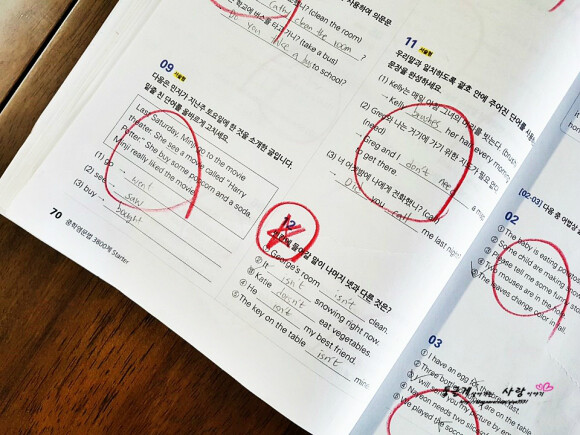 (clean the room)
clean the room ?
(take a bus)
Do you take a bus to school?
09 서술형
다음은 민지가 지난주 토요일에 한 것을 소개한 글입니다.
밑줄 친 단어를 올바르게 고치세요.
Last Saturday, Minji go to the movie
theater. She see a movie called "Harry
Potter." She buy some popcorn and a soda.
Minji really liked the movie.
(1) go → went
(2) see → saw
(3) buy → bought
70 중학영문법 3800제 Starter
11 서술형
우리말과 일치하도록 괄호 안에 주어진 단어를
문장을 완성하세요.
(1) Kelly는 매일 아침 그녀의 머리를 빗는다. (brush)
→ Kelly brushes her hair every morning
(2) Greg와 나는 거기에 가기 위한 지도가 필요
(need)
→ Greg and I don't need a
to get there.
(3) 너 어젯밤에 나에게 전화했니? (call)
→ Did you call me last night
12
빈칸에 들어갈 말이 나머지 넷과 다른 것은?
① George's room isn't clean.
② It isn't snowing right now.
③ Katie doesn't eat vegetables.
④ He isn't my best friend.
⑤ The key on the table isn't mine.
[02-03] 다음 중 어법상
02
① The baby is eating
② Some child are making
③ Please tell me some
④ Two mouses are in the
⑤ The leaves change color in fall.
03
① I have an egg for breakfast.
② Three are on the table
③ I will your picture by
④ Nayeon needs two
⑤ We played the soccer
사랑